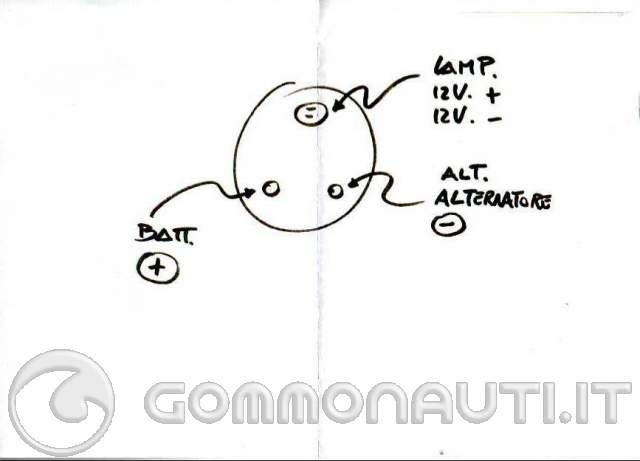 LAMP.
12V. +
12V. -
ALT.
ALTERNATORE
-
BATT.
+
GOMMONAUTI.IT